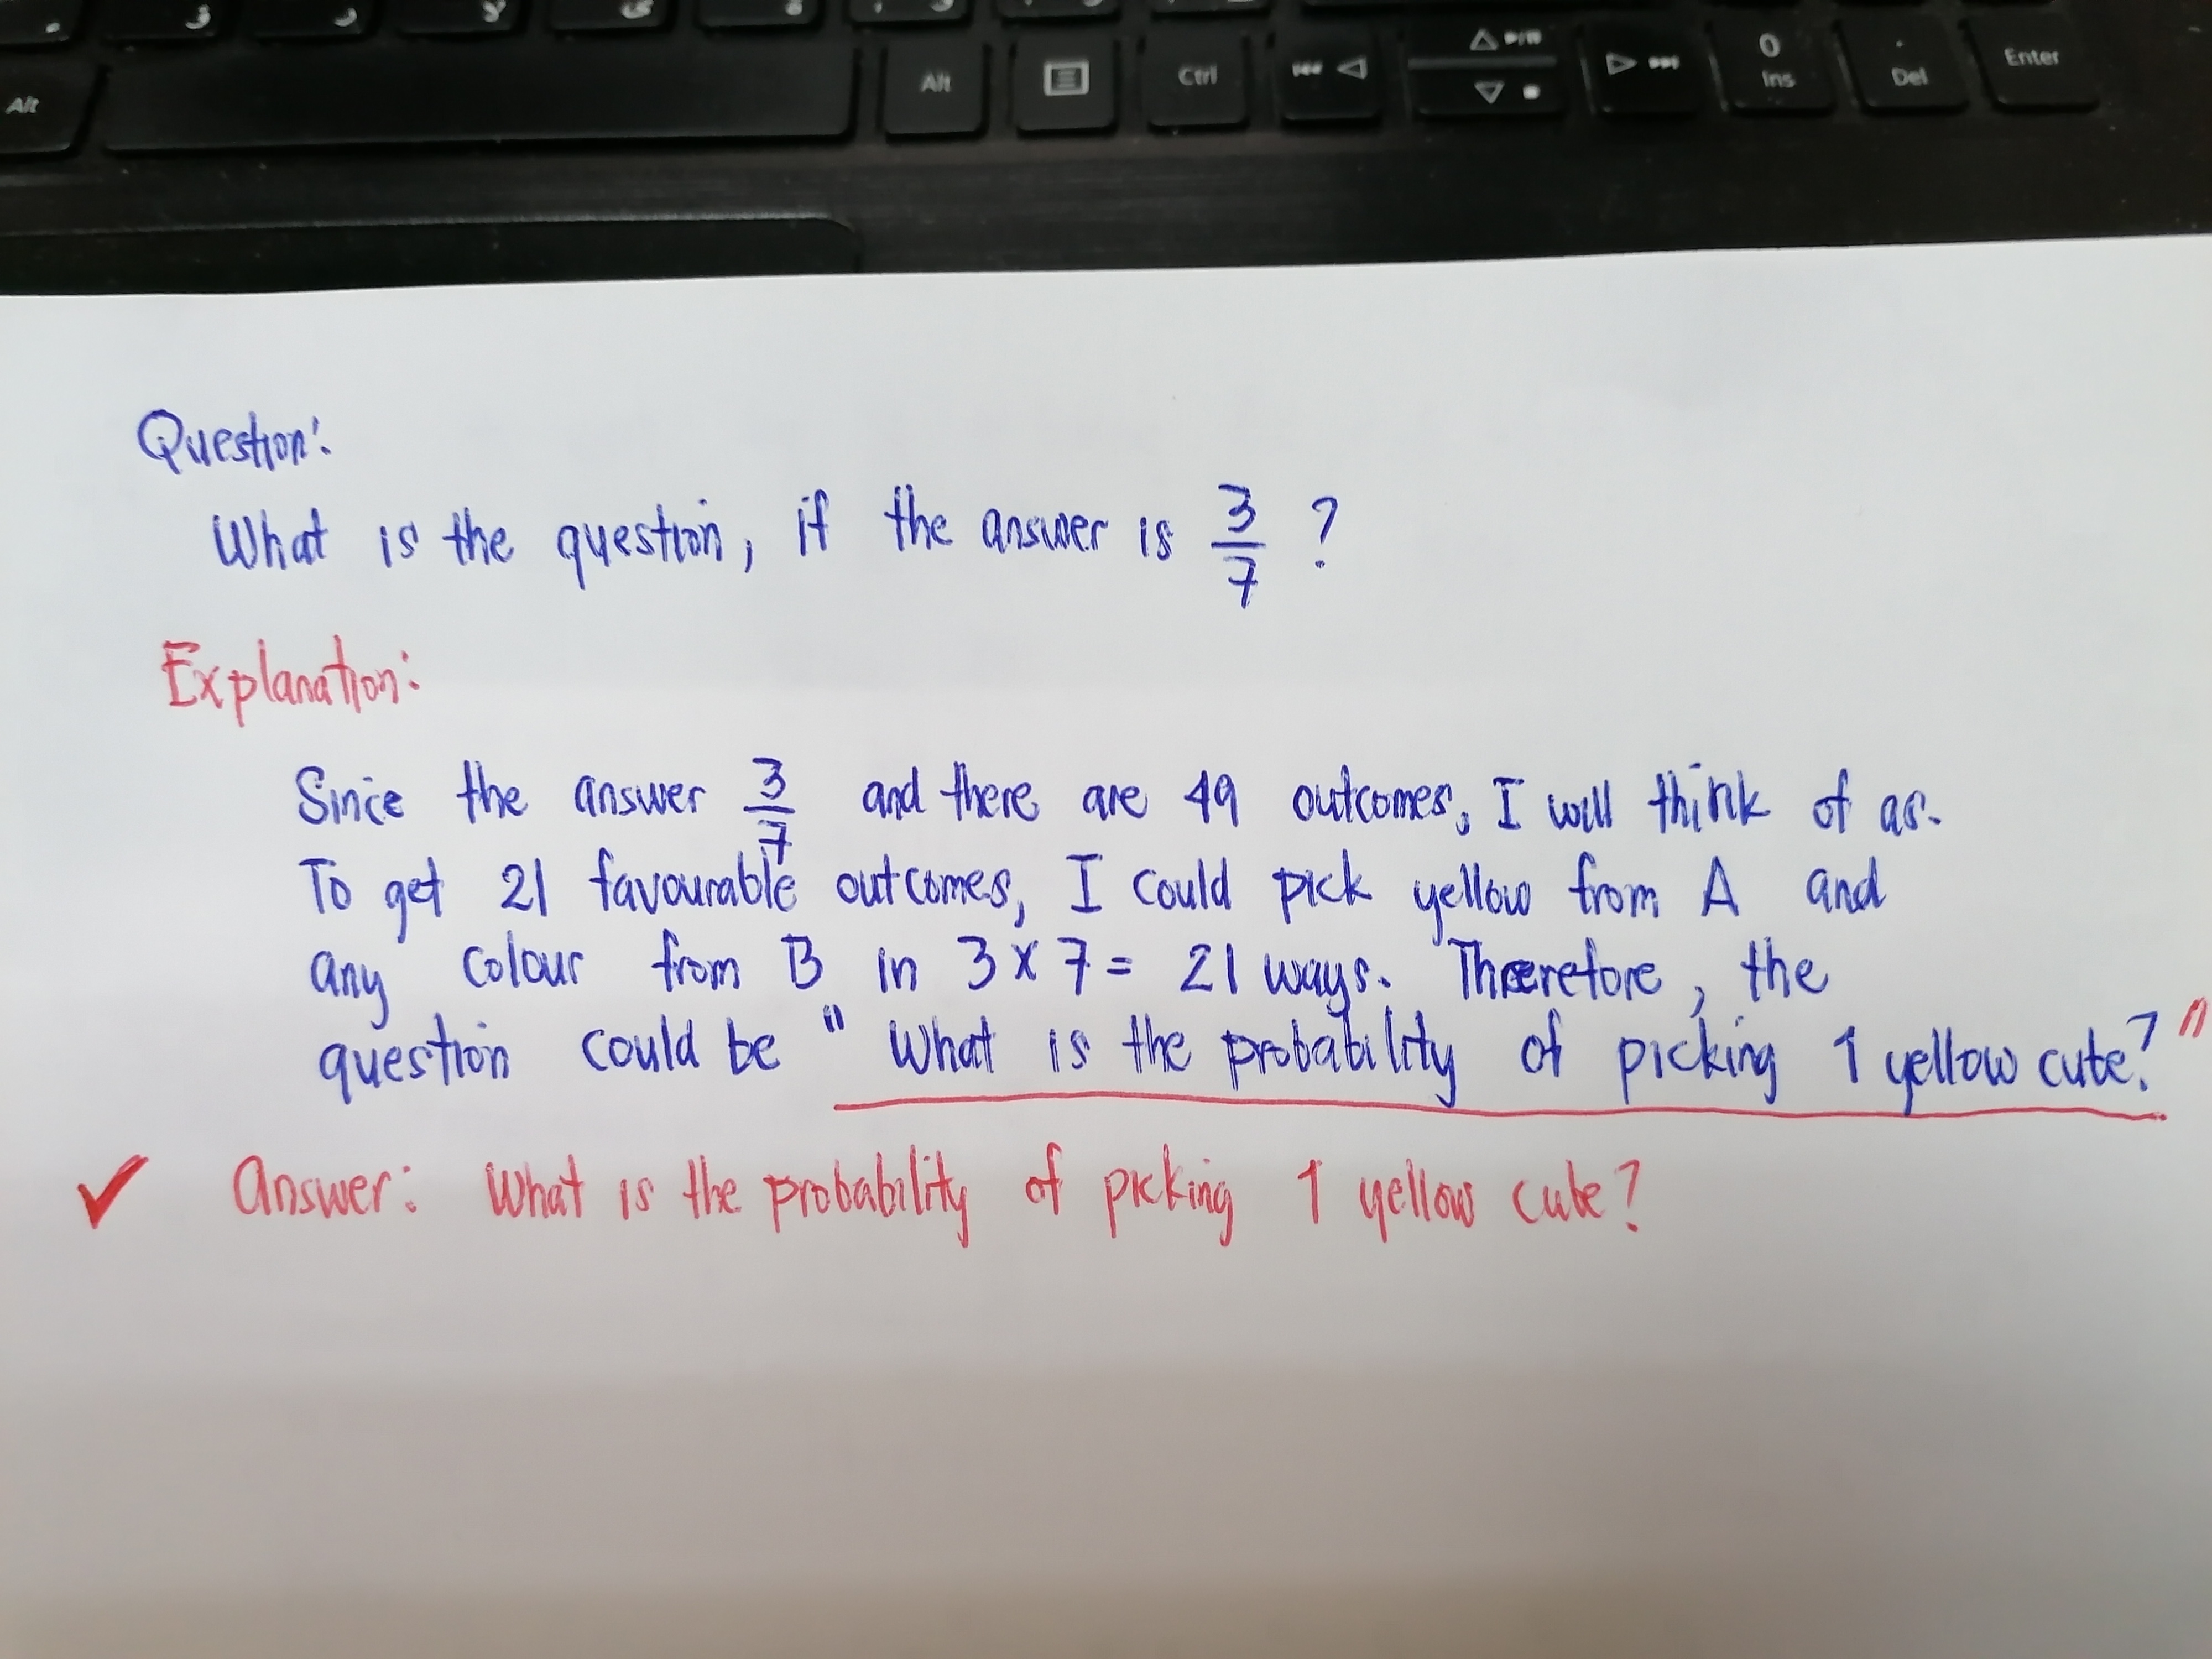 Alt
Alt
Ctrl
0
Ins
.
Del
Enter
Question:
What is the question, if the answer is 3/7 ?
Explanation:
Since the answer 3/7 and there are 49 outcomes, I will think of as.
To get 21 favourable outcomes, I could pick yellow from A and
any colour from B in 3 x 7 = 21 ways. Therefore, the
question could be " What is the probability of picking 1 yellow cube? "
✓ Answer: What is the probability of picking 1 yellow cube?